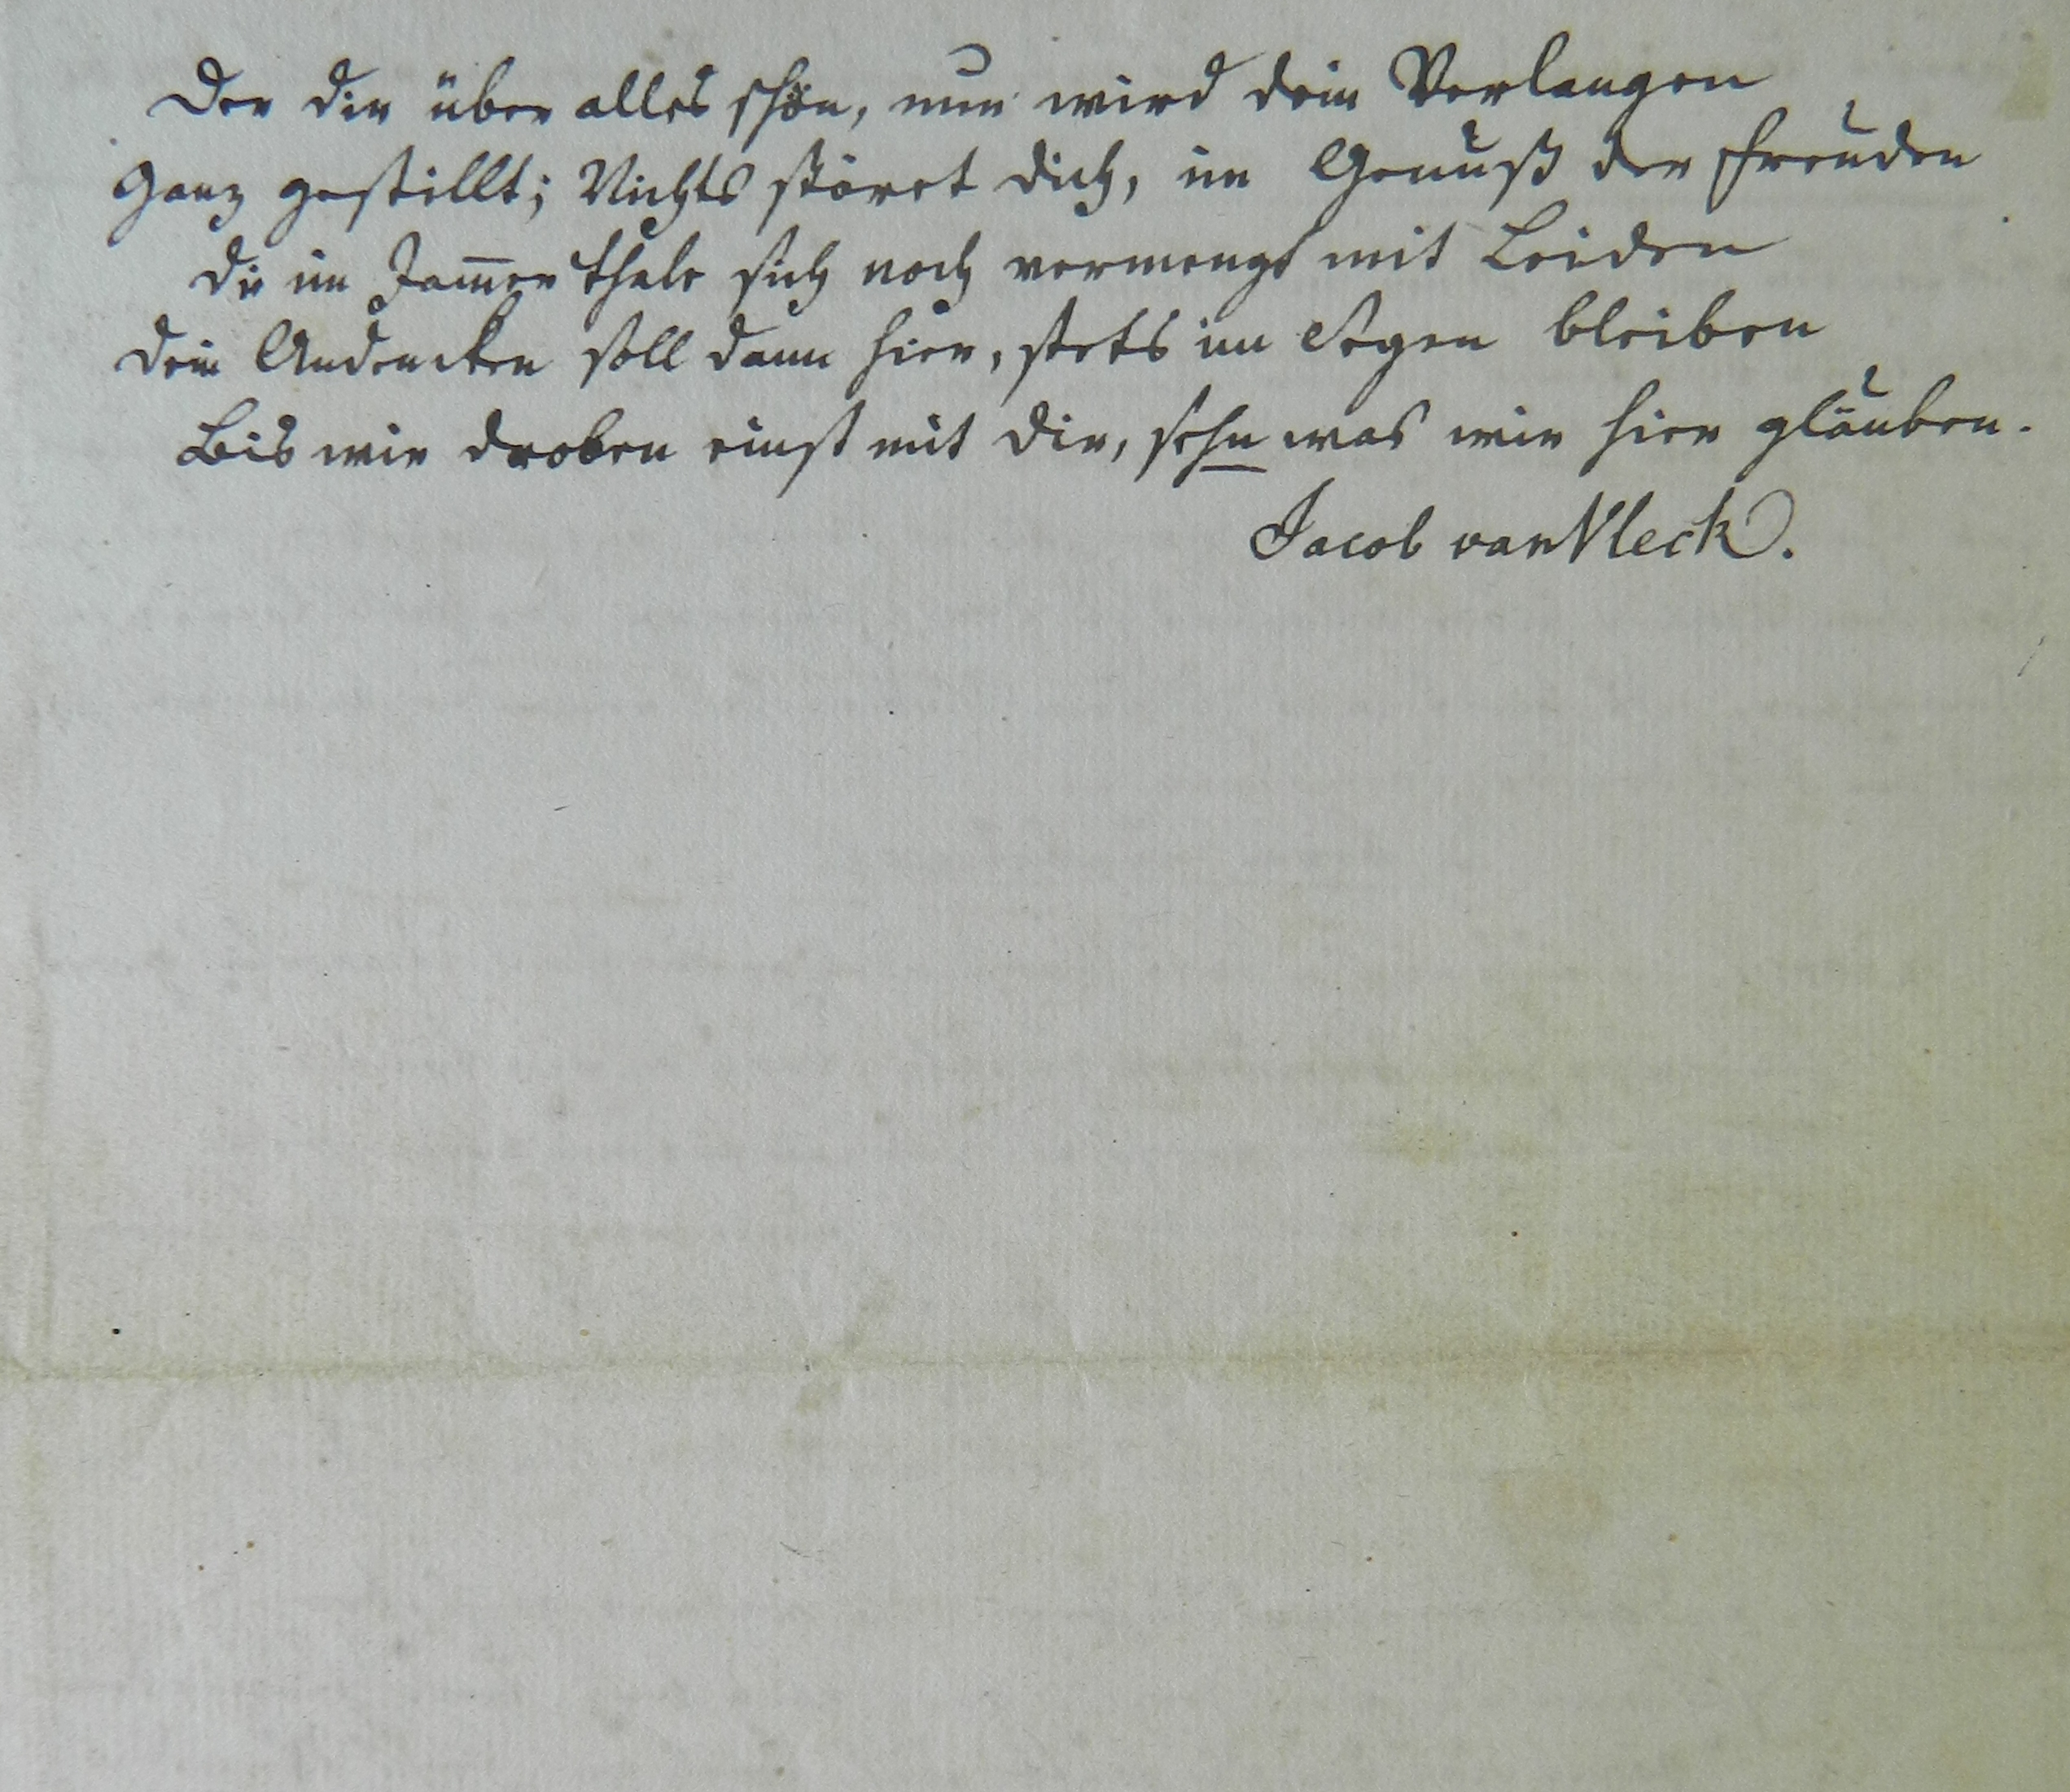 Der dir über alles schön, nun wird dein Verlangen
Ganz gestillt; Nichts störet dich, im Genuß der Freuden
Die im Jam̅er Thale sich noch vermengt mit Leiden
Dein Andencken soll dann hier, stets im Segen bleiben
Bis wir droben einst mit dir, sehn was wir hier gläuben.
Jacob van Vleck.